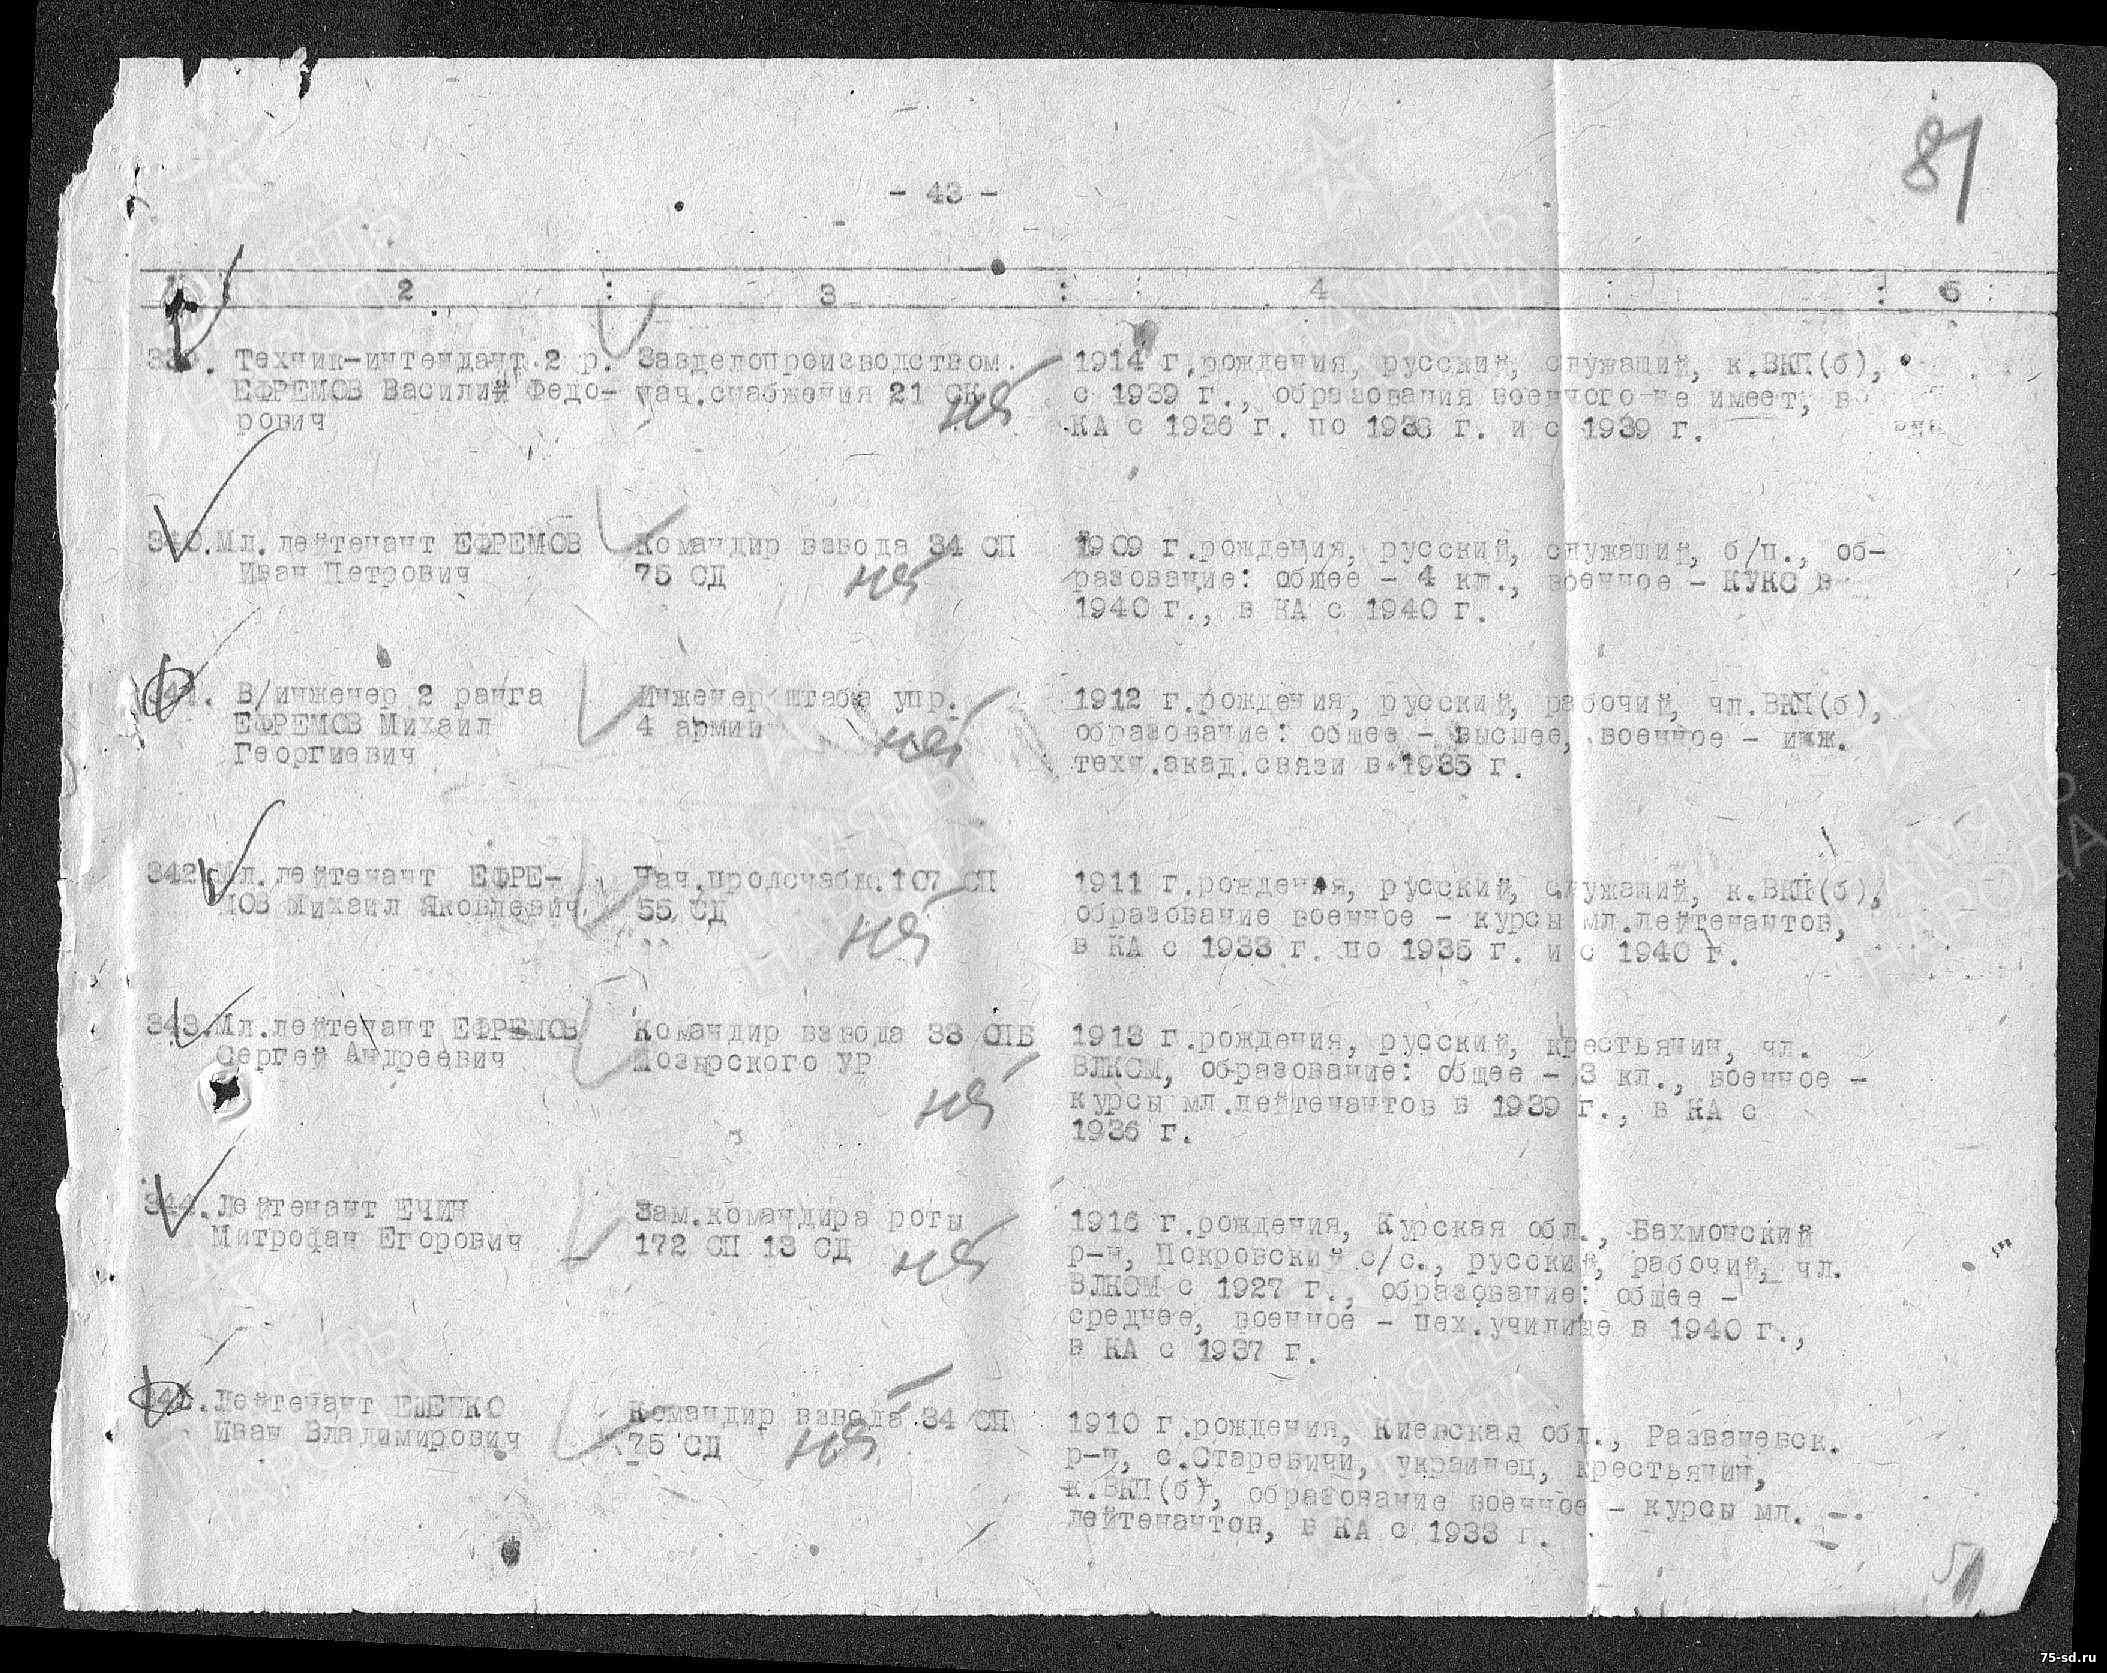 81
- 43 -
2 : 3 : 4 : 5
Техник-интендант 2 р. Завделопроизводством. 1914 г.рождения, русский, служащий, к.ВКП(б),
ЕФРЕМОВ Василий Федо- нач.снабжения 21 СК с 1939 г., образования военного не имеет, в
рович КА с 1936 г. по 1938 г. и с 1939 г.
нет
340.Мл.лейтенант ЕФРЕМОВ Командир взвода 34 СП 1909 г.рождения, русский, служащий, б/п., об-
Иван Петрович 75 СД разование: общее - 4 кл., военное - КУКС в
1940 г., в КА с 1940 г.
нет
341. В/инженер 2 ранга Инженер штаба упр. 1912 г.рождения, русский, рабочий, чл.ВКП(б),
ЕФРЕМОВ Михаил 4 армии образование: общее - высшее, военное - инж.
Георгиевич техн.акад.связи в 1935 г.
нет
342.Мл.лейтенант ЕФРЕ- Нач.продснабж.107 СП 1911 г.рождения, русский, служащий, к.ВКП(б),
МОВ Михаил Яковлевич 55 СД образование военное - курсы мл.лейтенантов,
в КА с 1933 г. по 1935 г. и с 1940 г.
нет
343.Мл.лейтенант ЕФРЕМОВ Командир взвода 33 ОПБ 1913 г.рождения, русский, крестьянин, чл.
Сергей Андреевич Мозырского УР ВЛКСМ, образование: общее - 3 кл., военное -
курсы мл.лейтенантов в 1939 г., в КА с
1936 г.
нет
344.Лейтенант ЕЧИН Зам.командира роты 1916 г.рождения, Курская обл., Бахмовский
Митрофан Егорович 172 СП 13 СД р-н, Покровский с/с., русский, рабочий, чл.
ВЛКСМ с 1927 г., образование: общее -
среднее, военное - пех.училище в 1940 г.,
в КА с 1937 г.
нет
345.Лейтенант ЕЩЕНКО Командир взвода 34 СП 1910 г.рождения, Киевская обл., Разваневск.
Иван Владимирович 75 СД р-н, с.Старевичи, украинец, крестьянин,
к.ВКП(б), образование военное - курсы мл.
лейтенантов, в КА с 1933 г.
нет
ПАМЯТЬ
НАРОДА
75-sd.ru